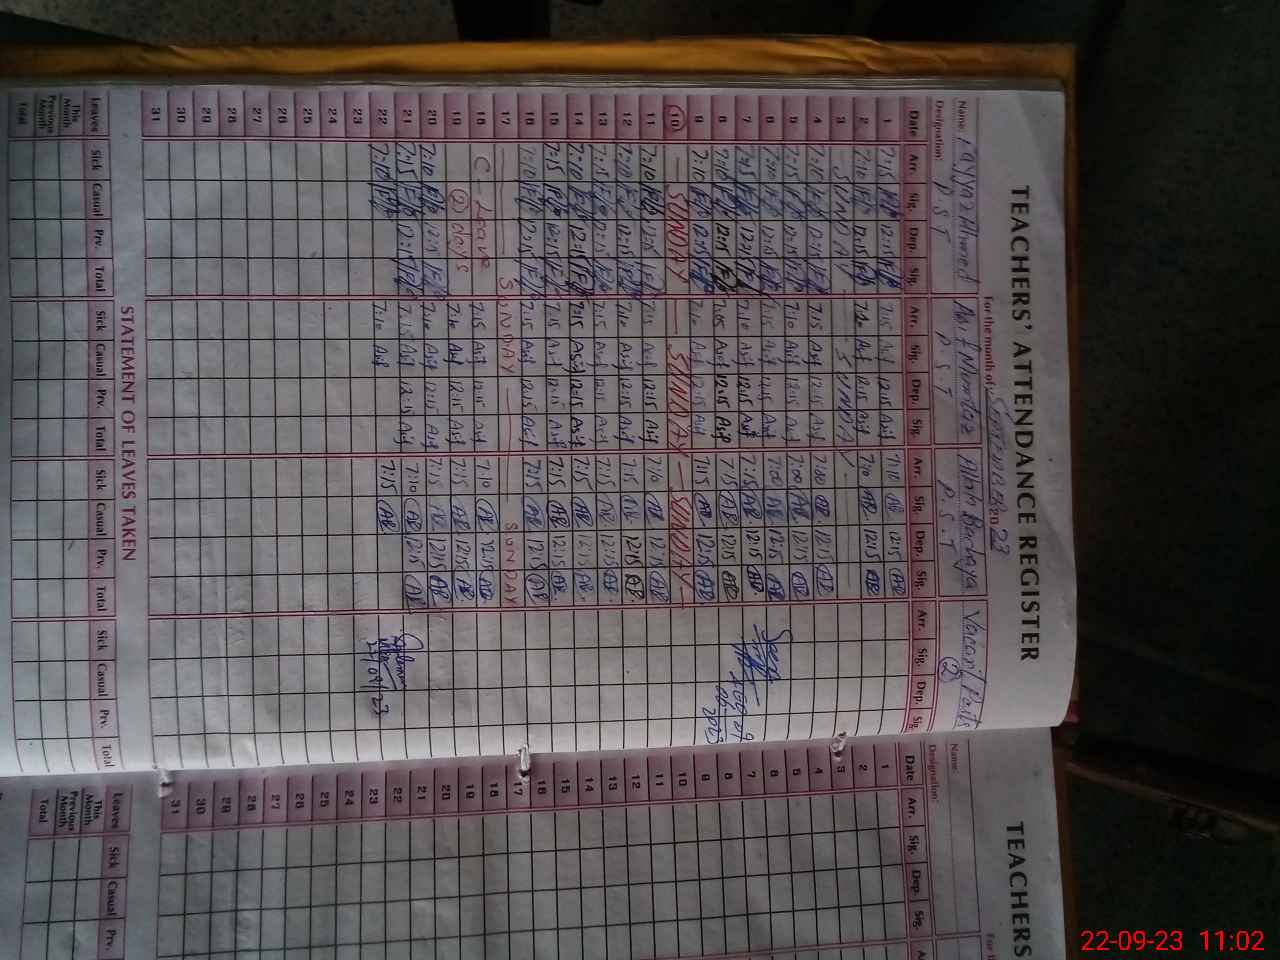 TEACHERS' ATTENDANCE REGISTER
For the month of SEPTEMBER 2023
Name: Fayyaz Ahmed Asif Mumtaz Allah Bachaya Vacant Posts
Designation: P.S.T P.S.T P.S.T (2)
Date Arr. Sig. Dep. Sig. Arr. Sig. Dep. Sig. Arr. Sig. Dep. Sig. Arr. Sig. Dep. Sig.
1 7:15 12:15 7:15 Asif 12:15 Asif 7:10 AB 12:15 AB
2 7:10 12:15 7:20 Asif 12:15 Asif 7:10 AB 12:15 AB
3 SUNDAY SUNDAY
4 7:10 12:15 7:15 Asif 12:15 Asif 7:00 AB 12:15 AB
5 7:15 12:15 7:10 Asif 12:15 Asif 7:00 AB 12:15 AB
6 12:15 7:15 Asif 12:15 Asif 7:00 AB 12:15 AB
7 7:15 12:15 7:10 Asif 12:15 Asif 7:15 AB 12:15 AB
8 7:10 12:15 7:05 Asif 12:15 Asif 7:15 AB 12:15 AB 2023
9 7:10 12:15 7:10 Asif 12:15 Asif 7:15 AB 12:15 AB
10 SUNDAY SUNDAY SUNDAY
11 7:10 12:15 7:15 Asif 12:15 Asif 7:10 AB 12:15 AB
12 7:10 12:15 7:10 Asif 12:15 Asif 7:15 AB 12:15 AB
13 7:15 12:15 7:15 Asif 12:15 Asif 7:15 AB 12:15 AB
14 7:10 12:15 7:15 Asif 12:15 Asif 7:15 AB 12:15 AB
15 7:15 12:15 7:15 Asif 12:15 Asif 7:15 AB 12:15 AB
16 7:10 12:15 7:15 Asif 12:15 Asif 7:15 AB 12:15 AB
17 SUNDAY SUNDAY
18 C - Leave 7:15 Asif 12:15 Asif 7:10 AB 12:15 AB
19 (2) days 7:10 Asif 12:15 Asif 7:15 AB 12:15 AB
20 7:10 12:15 7:10 Asif 12:15 Asif 7:15 AB 12:15 AB
21 7:15 12:15 7:15 Asif 12:15 Asif 7:10 AB 12:15 AB
22 7:10 7:10 Asif 7:15 AB 22/09/23
23
24
25
26
27
28
29
30
31
STATEMENT OF LEAVES TAKEN
Leaves Sick Casual Prv. Total Sick Casual Prv. Total Sick Casual Prv. Total Sick Casual Prv. Total
This Month
Previous Month
Total
TEACHERS
For
Name:
Designation:
Date Arr. Sig. Dep. Sig. Arr.
1
2
3
4
5
6
7
8
9
10
11
12
13
14
15
16
17
18
19
20
21
22
23
24
25
26
27
28
29
30
31
Leaves Sick Casual Prv.
This Month
Previous Month
Total
22-09-23 11:02